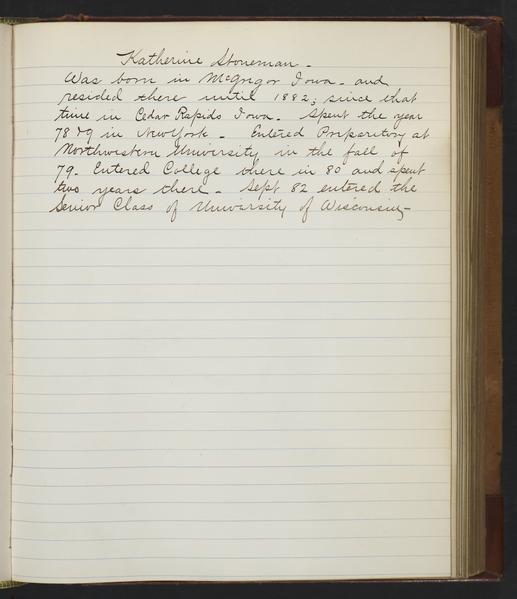 Katherine Stoneman -
Was born in McGregor Iowa - and
resided there until 1882; since that
time in Cedar Rapids Iowa. Spent the year
78 & 9 in New York - Entered Preparitory at
Northwestern University in the fall of
79. Entered College there in 80 and spent
two years there - Sept 82 entered the
Senior Class of University of Wisconsin -